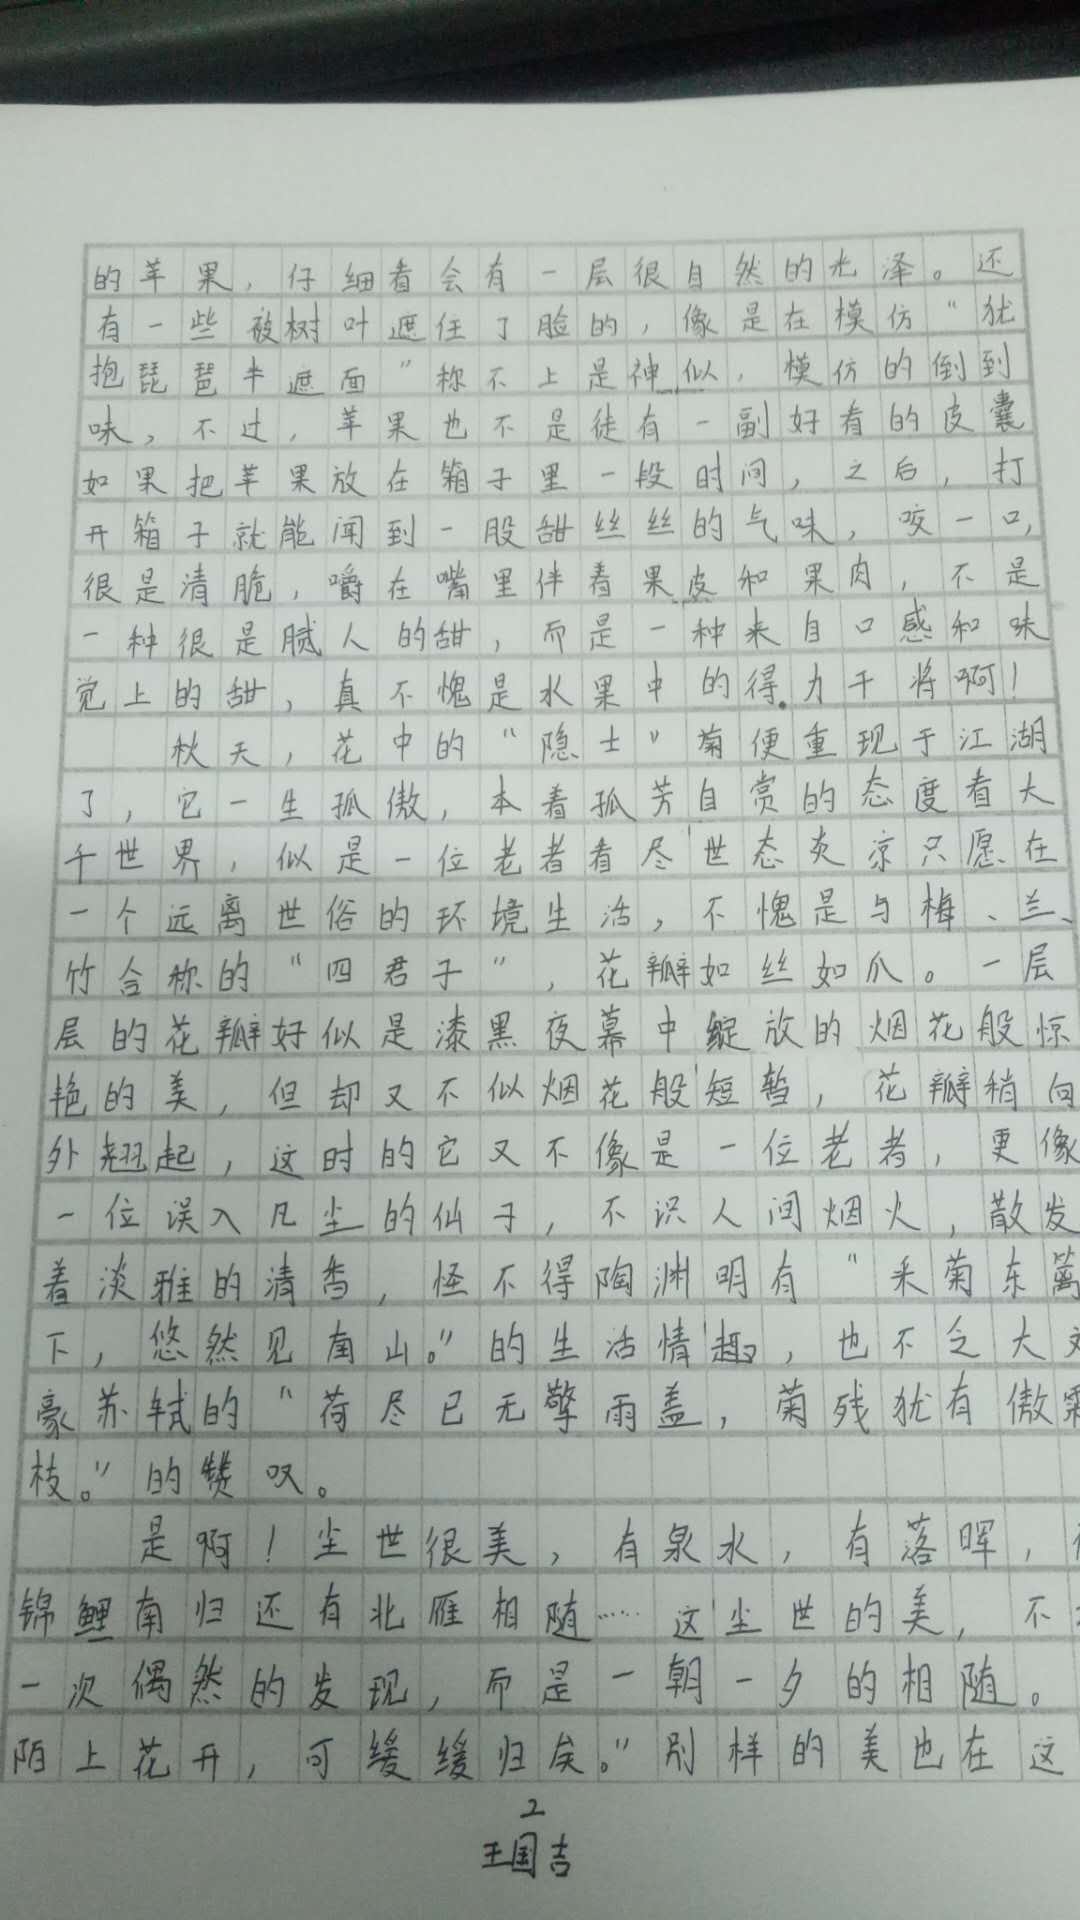 的苹果，仔细看会有一层很自然的光泽。还
有一些被树叶遮住了脸的，像是在模仿“犹
抱琵琶半遮面”称不上是神似，模仿的倒到
味，不过，苹果也不是徒有一副好看的皮囊
如果把苹果放在箱子里一段时间，之后，打
开箱子就能闻到一股甜丝丝的气味，咬一口，
很是清脆，嚼在嘴里伴着果皮和果肉，不是
一种很是腻人的甜，而是一种来自口感和味
觉上的甜，真不愧是水果中的得力干将啊！
秋天，花中的“隐士”菊便重现于江湖
了，它一生孤傲，本着孤芳自赏的态度看大
千世界，似是一位老者看尽世态炎凉只愿在
一个远离世俗的环境生活，不愧是与梅、兰、
竹合称的“四君子”，花瓣如丝如爪。一层
层的花瓣好似是漆黑夜幕中绽放的烟花般惊
艳的美，但却又不似烟花般短暂，花瓣稍向
外翘起，这时的它又不像是一位老者，更像
一位误入凡尘的仙子，不识人间烟火，散发
着淡雅的清香，怪不得陶渊明有“采菊东篱
下，悠然见南山。”的生活情趣，也不乏大文
豪苏轼的“荷尽已无擎雨盖，菊残犹有傲霜
枝。”的赞叹。
是啊！尘世很美，有泉水，有落晖，
锦鲤南归还有北雁相随……这尘世的美，不
一次偶然的发现，而是一朝一夕的相随。
陌上花开，可缓缓归矣。”别样的美也在这
2
王国吉